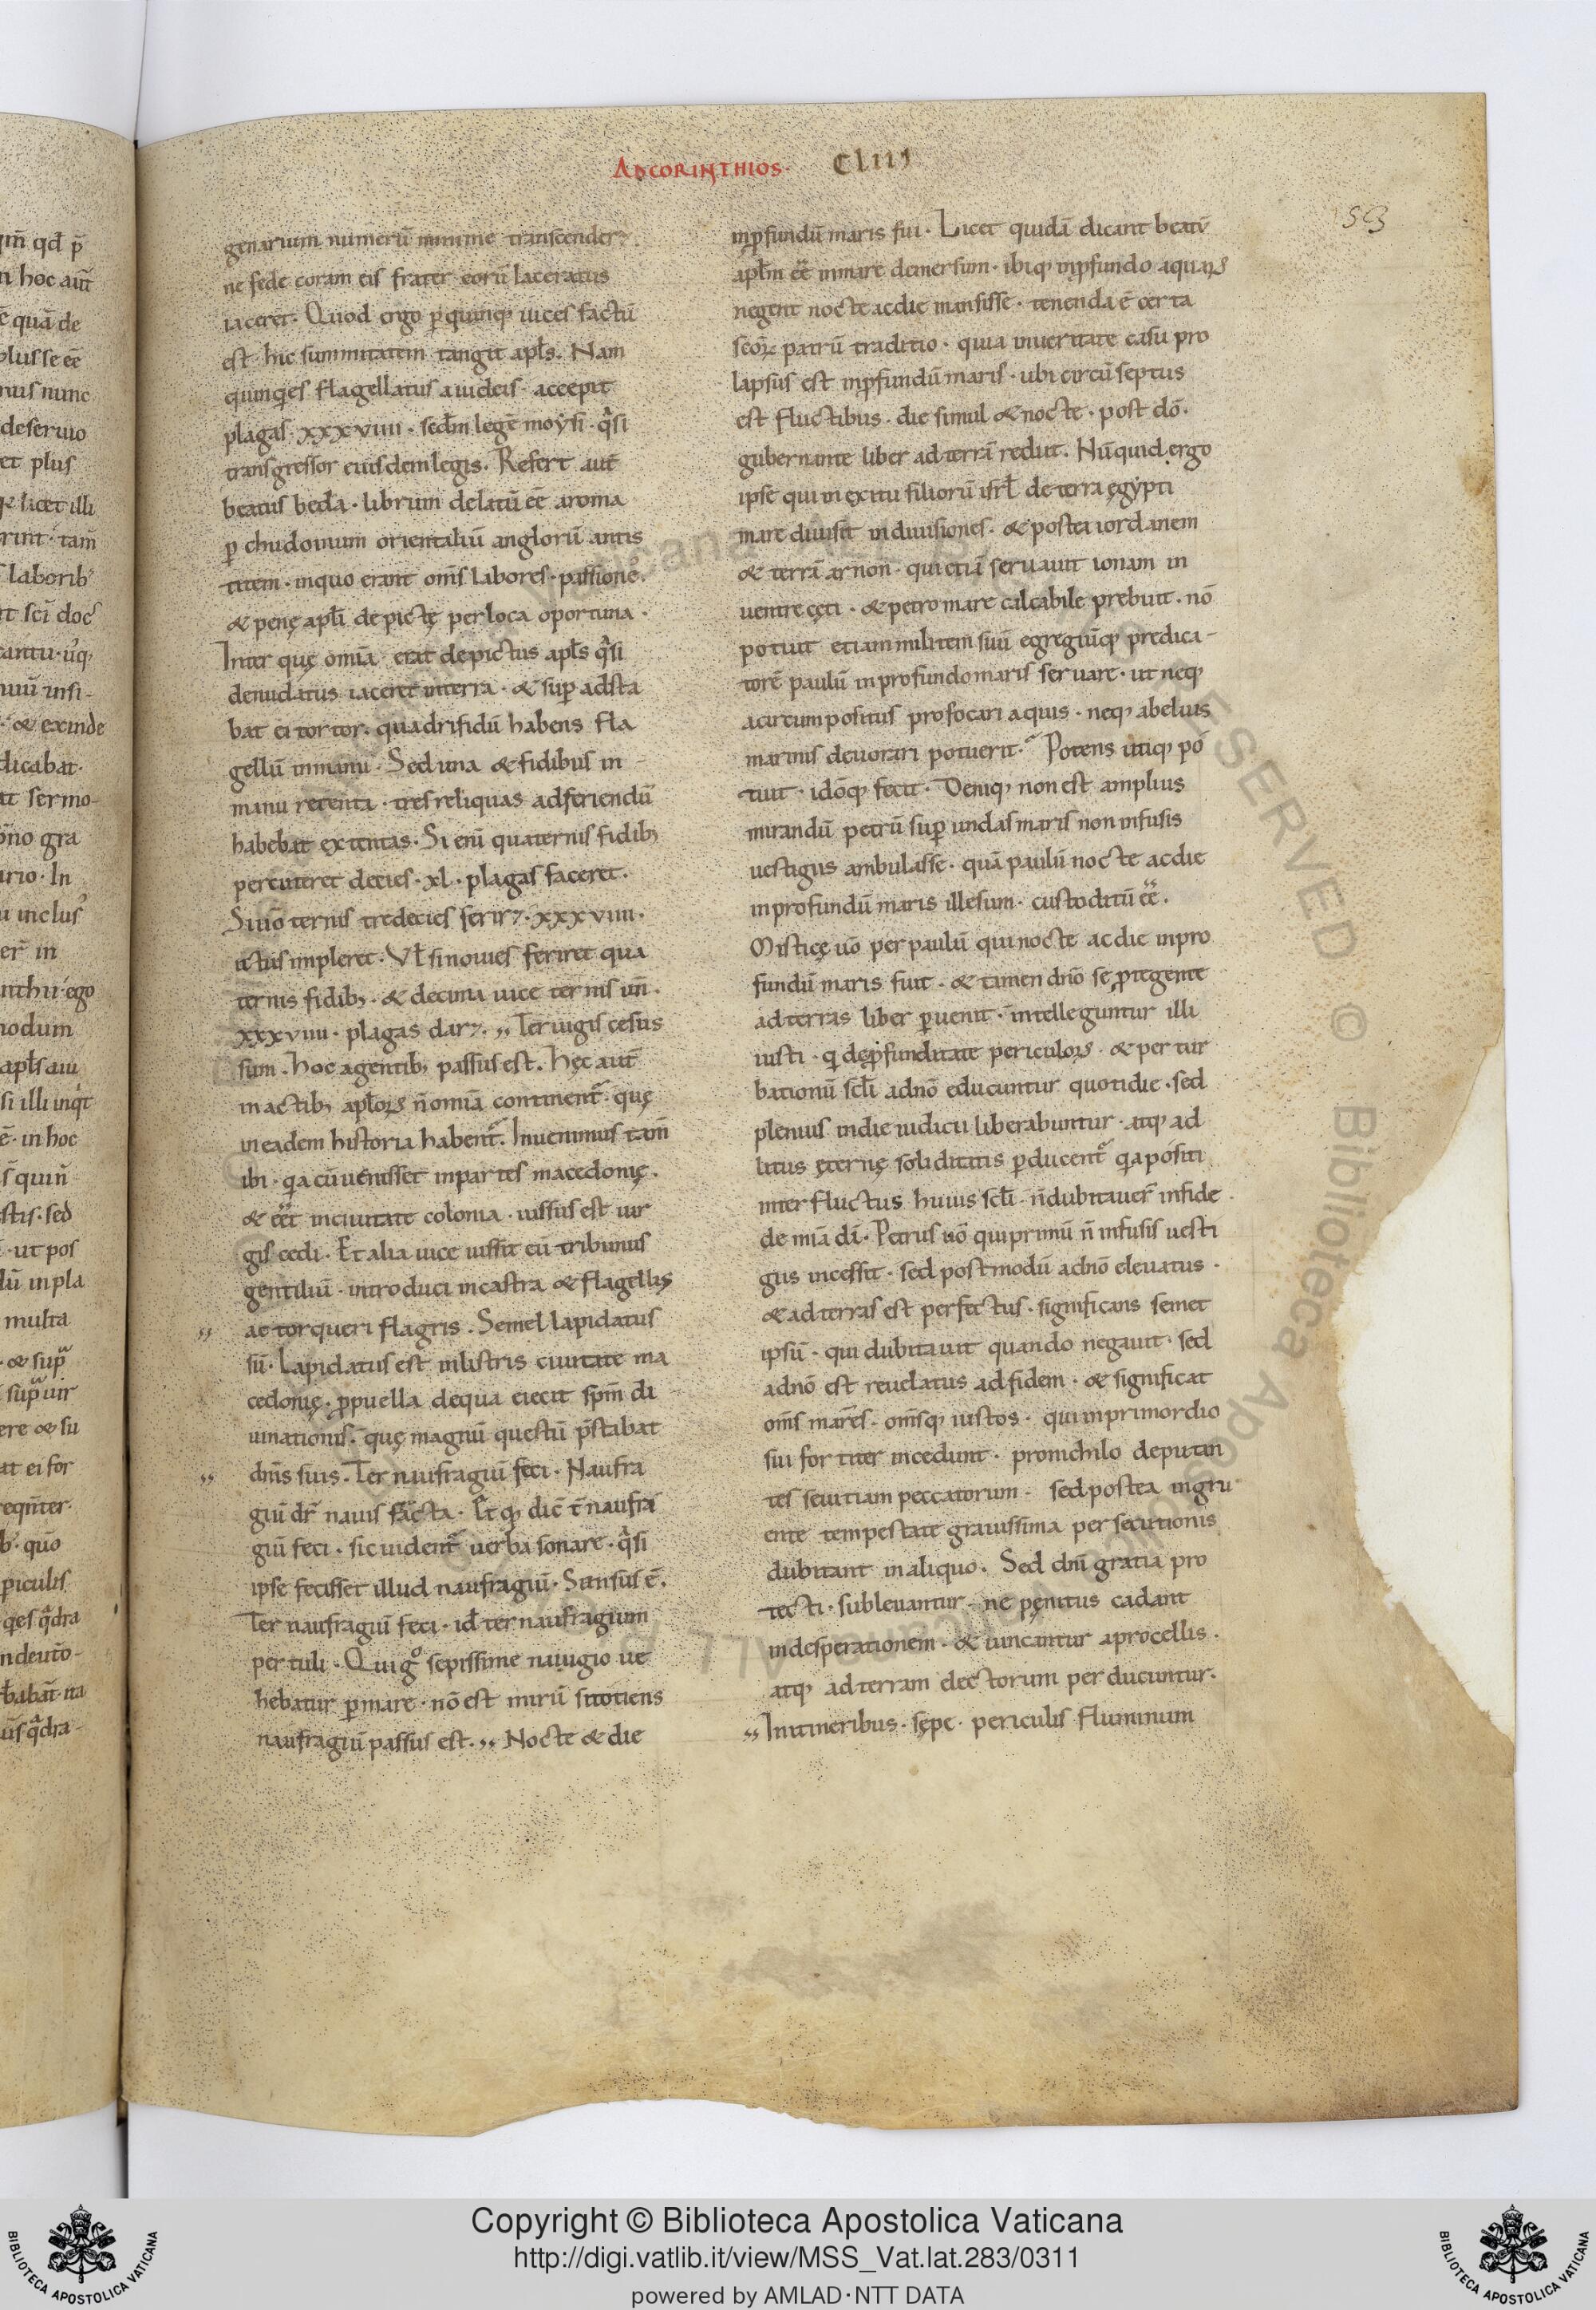 AD CORINTHIOS· CLIII
genarium numerū minime transcender&.
ne fede coram eis frater eorū laceratus
iaceret. Quod ergo p quinq; uices factū
est· hic summitatem tangit apl̄s. Nam
quinq̣es flagellatus a iudeis· accepit
plagas xxxviiii· sedm̄ legē moysi· q̄si
transgressor eiusdem legis. Refert aut̄
beatus beda· librum delatū eē a roma
p chudonium orientaliū anglorū antis
titem· in quo erant om̄s labores· passione᷒.
& penę apl̄i depictę per loca oportuna·
Inter quę omīa erat depictus apl̄s q̄si
denudatus iaceret in terra· & sup adsta
bat ei tortor· quadrifidū habens fla
gellū in manu· Sed una & fidibus in
manu retenta· tres reliquas ad feriendū
habebat extentas· Si enī quaternis fidib;
percuteret decies· xl· plagas faceret·
Si uō ternis tredecies ferir&· xxxviiii·
ictus impleret· Vl̄ si nouies feriret qua
ternis fidib;· & decima uice ternis un̄·
xxxviiii· plagas dar&· ,, Ter uirgis cesus
sum· hoc a gentib; passus est· Hęc aut̄
in actib; apl̄oꝝ n̄ omīa continent᷑· quę
in eadem historia habent᷑. Inuenimus tam̄
ibi· q̣a cū uenisset in partes macedonię·
& eēt in ciuitate colonia· iussus est uir
gis cedi· Et alia uice iussit eū tribunus
gentiliū· introduci in castra & flagellis
,, ac torqueri flagris· Semel lapidatus
sū· Lapidatus est in listris ciuitate ma
cedonię· p puella de qua eiecit spm̄ di
uinationis· quę magnū questū p̄stabat
,, dn̄is suis· Ter naufragiū feci· Naufra
giū dr̄ nauis fracta· Et q; dic̄ t̄ naufra
giū feci· sic uident᷑ uerba sonare· q̄si
ipse fecisset illud naufragiū· Sensus ē.
Ter naufragiū feci· id ter naufragium
pertuli· Qui g° sepissime nauigio ue
hebatur p mare· nō est mirū si totiens
naufragiū passus est· ,, Nocte & die
in pfundū maris fui· Licet quidā dicant beatū
apl̄m eē in mare demersum· ibiq; in pfundo aquaꝝ
negent nocte ac die mansisse· tenenda ē certa
sc̄oꝝ patrū traditio· quia in ueritate casu pro
lapsus est in pfundū maris· ubi circū septus
est fluctibus· die simul & nocte· post dō·
gubernante liber ad terrā rediit· Nūquid ergo
ipse qui in exitu filiorū isrl̄ de terra ęgypti
mare diuisit in diuisiones· & postea iordanem
& terrā arnon· qui etiā seruauit ionam in
uentre cęti· & petro mare calcabile prebuit· nō
potuit etiam militem suū egregiūq; predica-
torē paulū in profundo maris seruare· ut neq;
a circumpositus profocari aquis· neq; a beluis
marinis deuorari potuerit· Potens utiq; po
tuit· idōq; fecit· Deniq; non est amplius
mirandū petrū sup undas maris non infusis
uestigiis ambulasse· quā paulū nocte ac die
in profundū maris illesum· custoditū eē·
Misticę uō per paulū qui nocte ac die in pro
fundū maris fuit· & tamen dn̄o se ptegente
ad terras liber puenit· intelleguntur illi
iusti· q̣ de pfunditate periculoꝝ· & pertur
bationū scl̄i a dn̄o educuntur quotidie· sed
plenius in die iudicii liberabuntur· atq; ad
litus ęternę soliditatis pducent᷑ q̣a positi
inter fluctus huius scl̄i· n̄ dubitauer̄ in fide·
de mīa dī· Petrus uō qui primū n̄ infusis uesti
giis incessit· sed postmodū a dn̄o eleuatus·
& ad terras est perfectus· significans semet
ipsū· qui dubitauit quando negauit· sed
a dn̄o est reuelatus ad fidem· & significat
om̄s mares· om̄sq; iustos· qui in primordio
sui fortiter incedunt· pro nichilo deputan
tes seuitiam peccatorum· sed postea ingru
ente tempestate grauissima persecutionis
dubitant in aliquo· Sed dn̄i gratia pro
tecti· subleuantur· ne pęnitus cadant
in desperationem· & iuncantur a procellis·
atq; ad terram dectorum perducuntur·
,, In itineribus· sępe· periculis fluminum
Copyright © Biblioteca Apostolica Vaticana
http://digi.vatlib.it/view/MSS_Vat.lat.283/0311
powered by AMLAD·NTT DATA
BIBLIOTECA APOSTOLICA VATICANA
BIBLIOTECA APOSTOLICA VATICANA